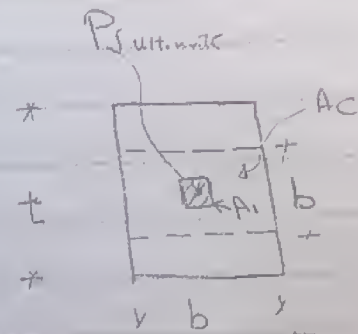 Ps ultimate
Ac
t
A1
b
b